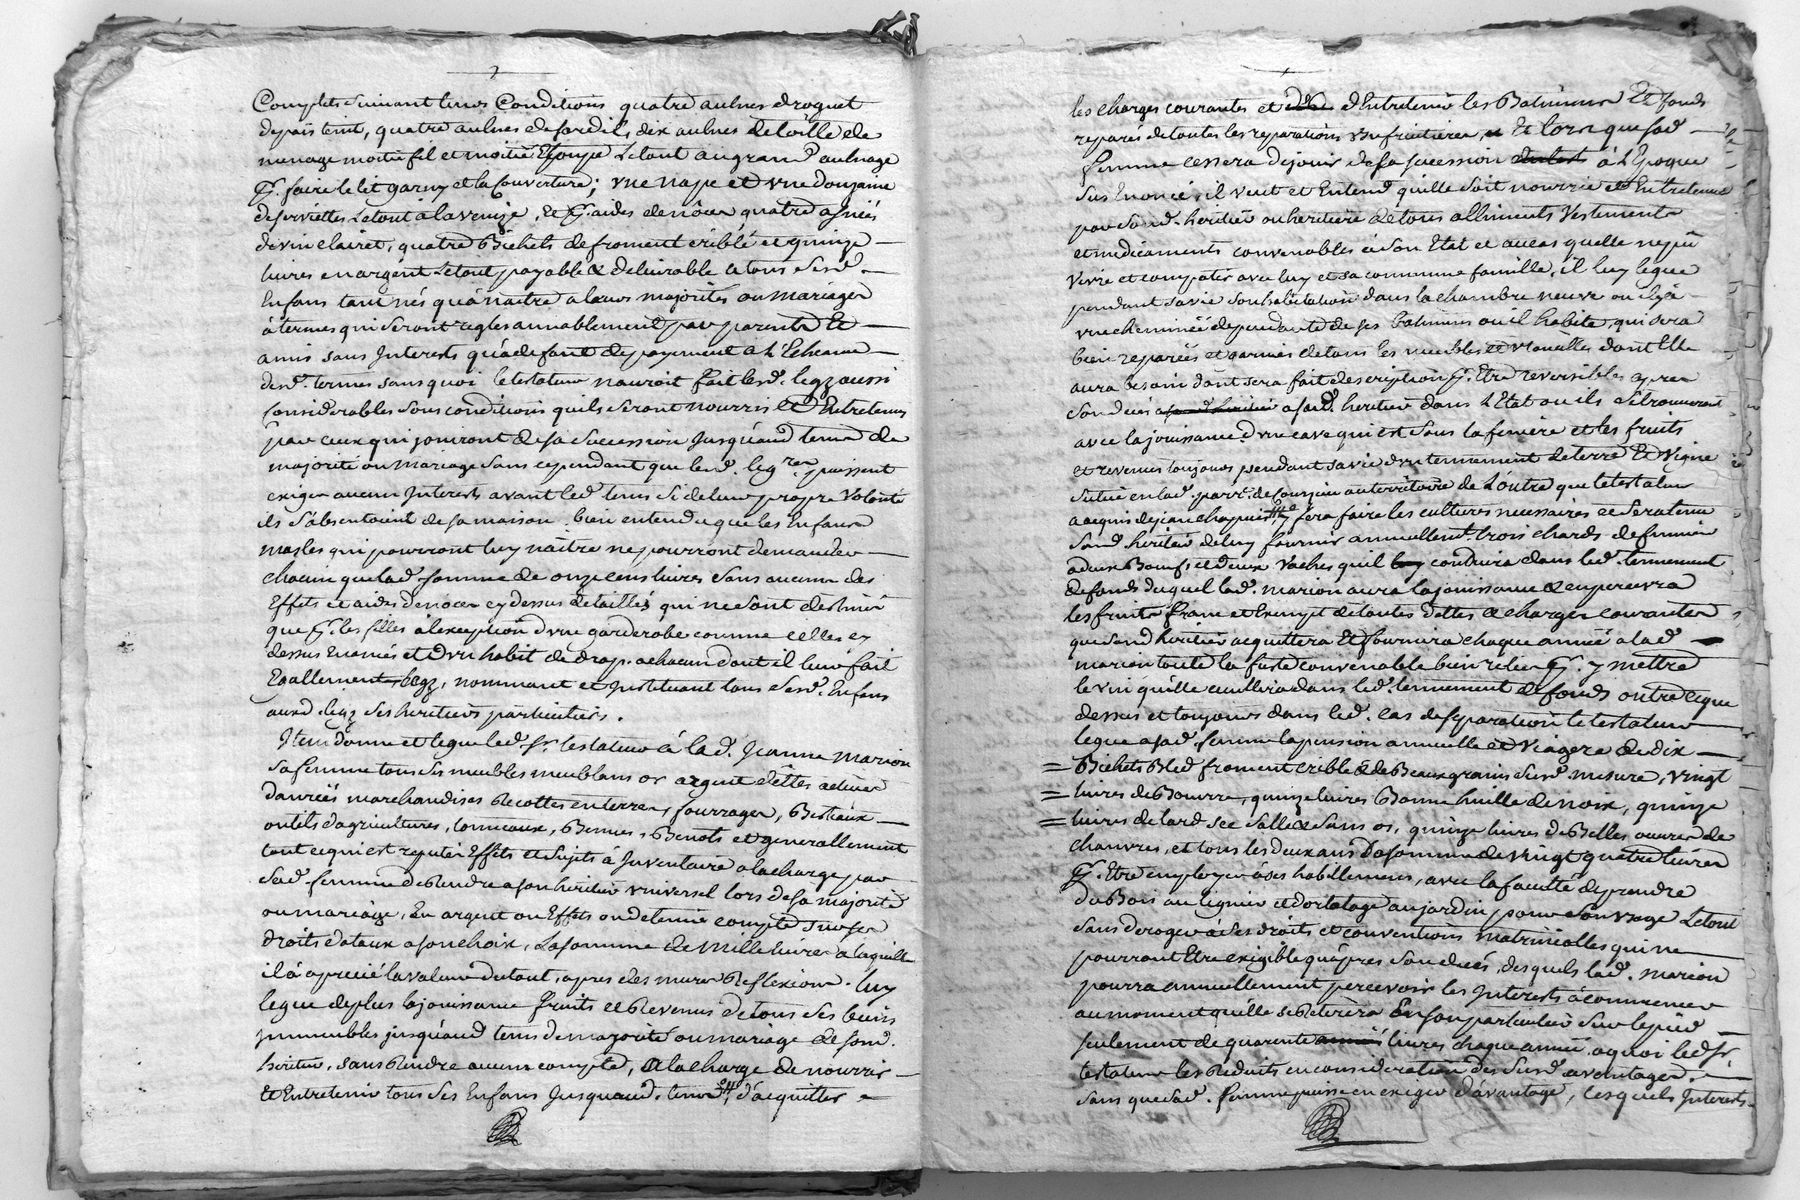 Complets suivant leurs Conditions quatre aulnes droguet
depais teint, quatre aulnes de fordils, dix aulnes de toille de
menage moitié fil et moitié Etoupe Letout augrand aulnage
pr. faire le lit garny et la Couverture; vne nape et vne douzaine
de serviettes Letout à la venize, et pr. aides de nôces quatre asnées
de vin clairet, quatre Bichets de froment criblé et quinze
livres en argent Letout payable & delivrable a tous sesd.
Enfans tant nés qu'à naitre a leurs majorités ou mariages
à termes qui seront reglés amiablement par parents Et
amis sans Interests qu'à defaut de payement a L'Echeance
desd. termes sans quoi le testateur n'auroit fait lesd. legz aussi
considerables sous conditions qu'ils seront nourris et Entretenus
par ceux qui jouiront de sa succession Jusqu'aud. tems de
majorité ou mariage sans cependant que lesd. legres puissent
exiger aucun Interests avant led. tems si de leur propre Volonté
ils s'absentoient de sa maison, bien entendu que les Enfans
masles qui pourront luy naitre ne pourront demander
chacun que lad. somme de onze cens livres sans aucuns des
Effets et aides de noces cy dessus detaillés qui ne sont destinés
que pr. les filles à l'exception d'vne garderobe comme celles cy
dessus Enoncés et d'vn habit de drap a chacun dont il leur fait
Egallement legz, nommant et Instituant tous sesd. Enfans
auxd. legz ses heritiers particuliers.
Item donne et legue led. sr. testateur à lad. Jeanne Marion
sa femme tous ses meubles meublans or argent dettes actives
danrées marchandises Recoltes en terres, fourrages, Bestiaux
outils d'agricultures, tonneaux, Bennes, Benots et generallement
tout ce qui est reputé Effets et sujets à Inventaire a la charge par
sad. femme de Rendre a son heritier vniversel lors de sa majorité
ou mariage, En argent ou Effets ou de tenir compte sur ses
droits dotaux a son choix, La somme de mille livres a laquelle
il à aprecié la valeur du tout, apres des mures Reflexions. luy
legue de plus la jouissance fruits et Revenus de tous ses biens
immeubles jusqu'aud. tems de majorité ou mariage de sond.
heritier, sans Rendre aucun compte, a la charge de nourrir
Et Entretenir tous ses Enfans Jusquaud. tems d'acquitter
les charges courantes et d'Entretenir les Batimens Et fonds
reparés de toutes les reparations vsufruitieres, Et lorsque sad.
femme cessera de jouir de sa succession à L'Epoque
sus Enoncé, il veut et Entend qu'elle soit nourrie et Entretenue
par sond. heritier ou heritiere de tous alliments Vestements
et medicaments convenables à son Etat et au cas qu'elle ne pû
Vivre et compatir avec luy et sa commune famille, il luy legue
pendant sa vie son habitation dans la chambre neuve ou il y à
vne cheminée dependante de ses batimens où il habite, qui sera
bien reparée et garnie de tous les meubles et vtenciles dont Elle
aura besoin dont sera fait description pr. Etre reversibles apres
son decès a sond. heritier dans L'Etat ou ils se trouveront
avec la jouissance d'vne cave qui est sous la feniere et les fruits
et revenus toujours pendant sa vie d'vn tennement de terre Et Vigne
situé en lad. parr. de au territoire de Loutre que le testateur
a acquis de jean fera faire les cultures necessaires et sera tenu
sond. heritier de luy fournir annuellement trois chards de fumier
a deux Boeufs et deux Vaches qu'il conduira dans led. tennement
de fonds duquel lad. Marion aura la jouissance & en percevra
les fruits franc et Exempt de toutes dettes & charges courantes
que sond. heritier acquittera Et fournira chaque année a lad.
marion toute la futte convenable bien reliée pr. y mettre
le vin qu'elle cueillira dans led. tennement de fonds outre cequi
dessus et toujours dans led. cas de separation le testateur
legue a sad. femme la pension annuelle et Viagere de dix
Bichets Bled froment crible & de Beaux grains susd. mesure, vingt
livres de Beurre, quinze livres Bonne huille de noix, quinze
livres de lard sec sallé & sans os, quinze livres de Belles ouvres de
chanvres, et tous les deux ans La somme de vingt quatre livres
pr. Etre employée à ses habillemens, avec la faculté de prendre
du Bois au legnier et d'ortolage au jardin pour son vsage Letout
sans deroger à ses droits et conventions matrimoniales qui ne
pourront Etre exigible qu'apres son decès, desquels lad. marion
pourra annuellement percevoir les Interests à commencer
au moment qu'elle se Retirera En son particulier sur le pied
seulement de quarante livres chaque année, a quoi led. sr.
testateur les Reduits en consideration des susd. avantages.
sans que sad. femme puisse en exiger d'avantage, lesquels Interests